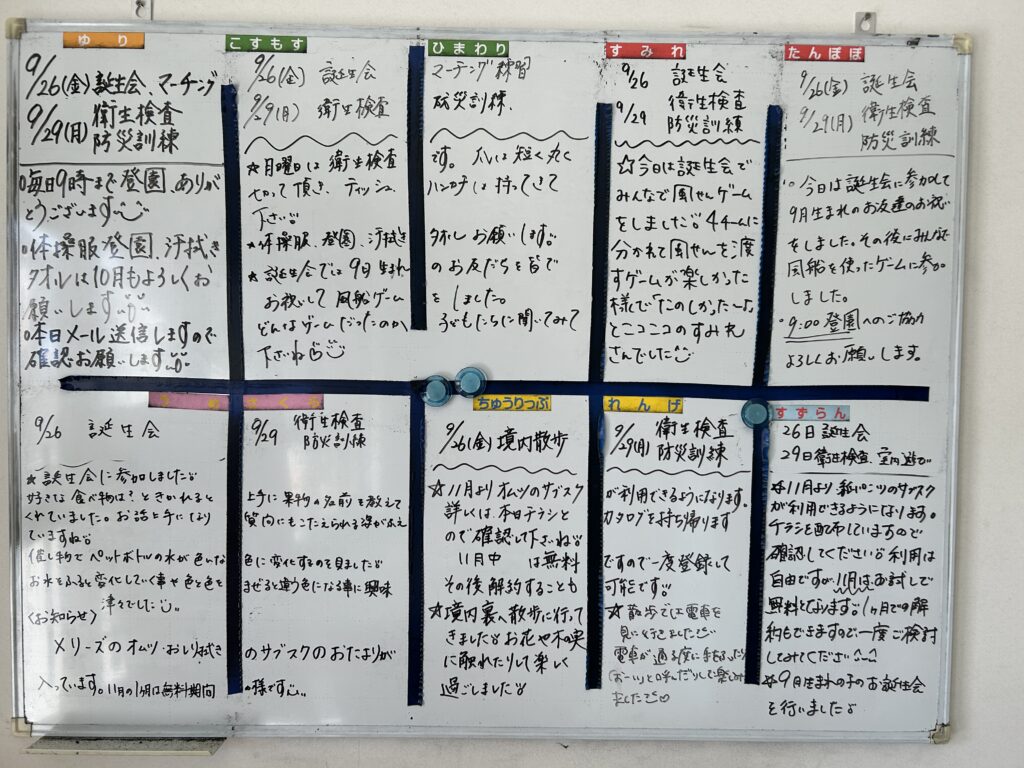 ゆり
9/26(金)誕生会、マーチング
9/29(月)衛生検査
防災訓練
○毎日9時まで登園、ありが
とうございます
○体操服登園、汗拭き
タオルは10月もよろしくお
願いします
○本日メール送信しますので
確認お願いします
こすもす
9/26(金) 誕生会
9/29(月) 衛生検査
ひまわり
マーチング練習
防災訓練
☆月曜日は衛生検査です。爪は短く丸く
切って頂き、ティッシュ、ハンカチは持ってきて
下さい
☆体操服、登園、汗拭きタオルお願いします。
☆誕生会では9月生まれのお友だちを皆で
お祝いして風船ゲームをしました。
どんなゲームだったのか子どもたちに聞いてみて
下さいね
すみれ
9/26 誕生会
9/29 衛生検査
防災訓練
☆今日は誕生会で
みんなで風せんゲーム
をしました。4チームに
分かれて風せんを渡
すゲームが楽しかった
様で「たのしかったー」
とニコニコのすみれ
さんでした
たんぽぽ
9/26(金) 誕生会
9/29(月) 衛生検査
防災訓練
○今日は誕生会に参加して
9月生まれのお友達のお祝い
をしました。その後にみんなで
風船を使ったゲームに参加
しました。
○9:00登園へのご協力
よろしくお願いします。
さくら
9/26 誕生会
9/29 衛生検査
防災訓練
★誕生会に参加しました
好きな食べ物は?ときかれると上手に果物の名前を教えて
くれていました。お話上手になり質問にもこたえられる姿がふえ
ていますね
催し物でペットボトルの水が色いな色に変化するのを見ました
お水をふると変化していく事や色と色をまぜると違う色になる事に興味
津々でした
〈お知らせ〉
メリーズのオムツ・おしり拭きのサブスクのおたよりが
入っています。11月の1ヶ月は無料期間の様です
ちゅうりっぷ
9/26(金)境内散歩
れんげ
9/29(月)衛生検査
防災訓練
☆11月よりオムツのサブスクが利用できるようになります。
詳しくは、本日チラシとカタログを持ち帰ります
ので確認して下さいね
11月中は無料ですので一度登録して
その後解約することも可能です
☆境内裏へ散歩に行って
きました お花や木の実
に触れたりして楽しく
過ごしました
☆散歩では電車を
見に行きました
電車が通る度に手をふったり
「おーい」と呼んだりして楽しみ
ました
すずらん
26日誕生会
29日衛生検査、室内遊び
☆11月より紙パンツのサブスク
が利用できるようになります。
チラシを配布していますので
確認してください 利用は
自由ですが、11月はお試しで
無料となります。1ヶ月での解
約もできますので一度ご検討
してみてください
☆9月生まれの子のお誕生会
を行いました